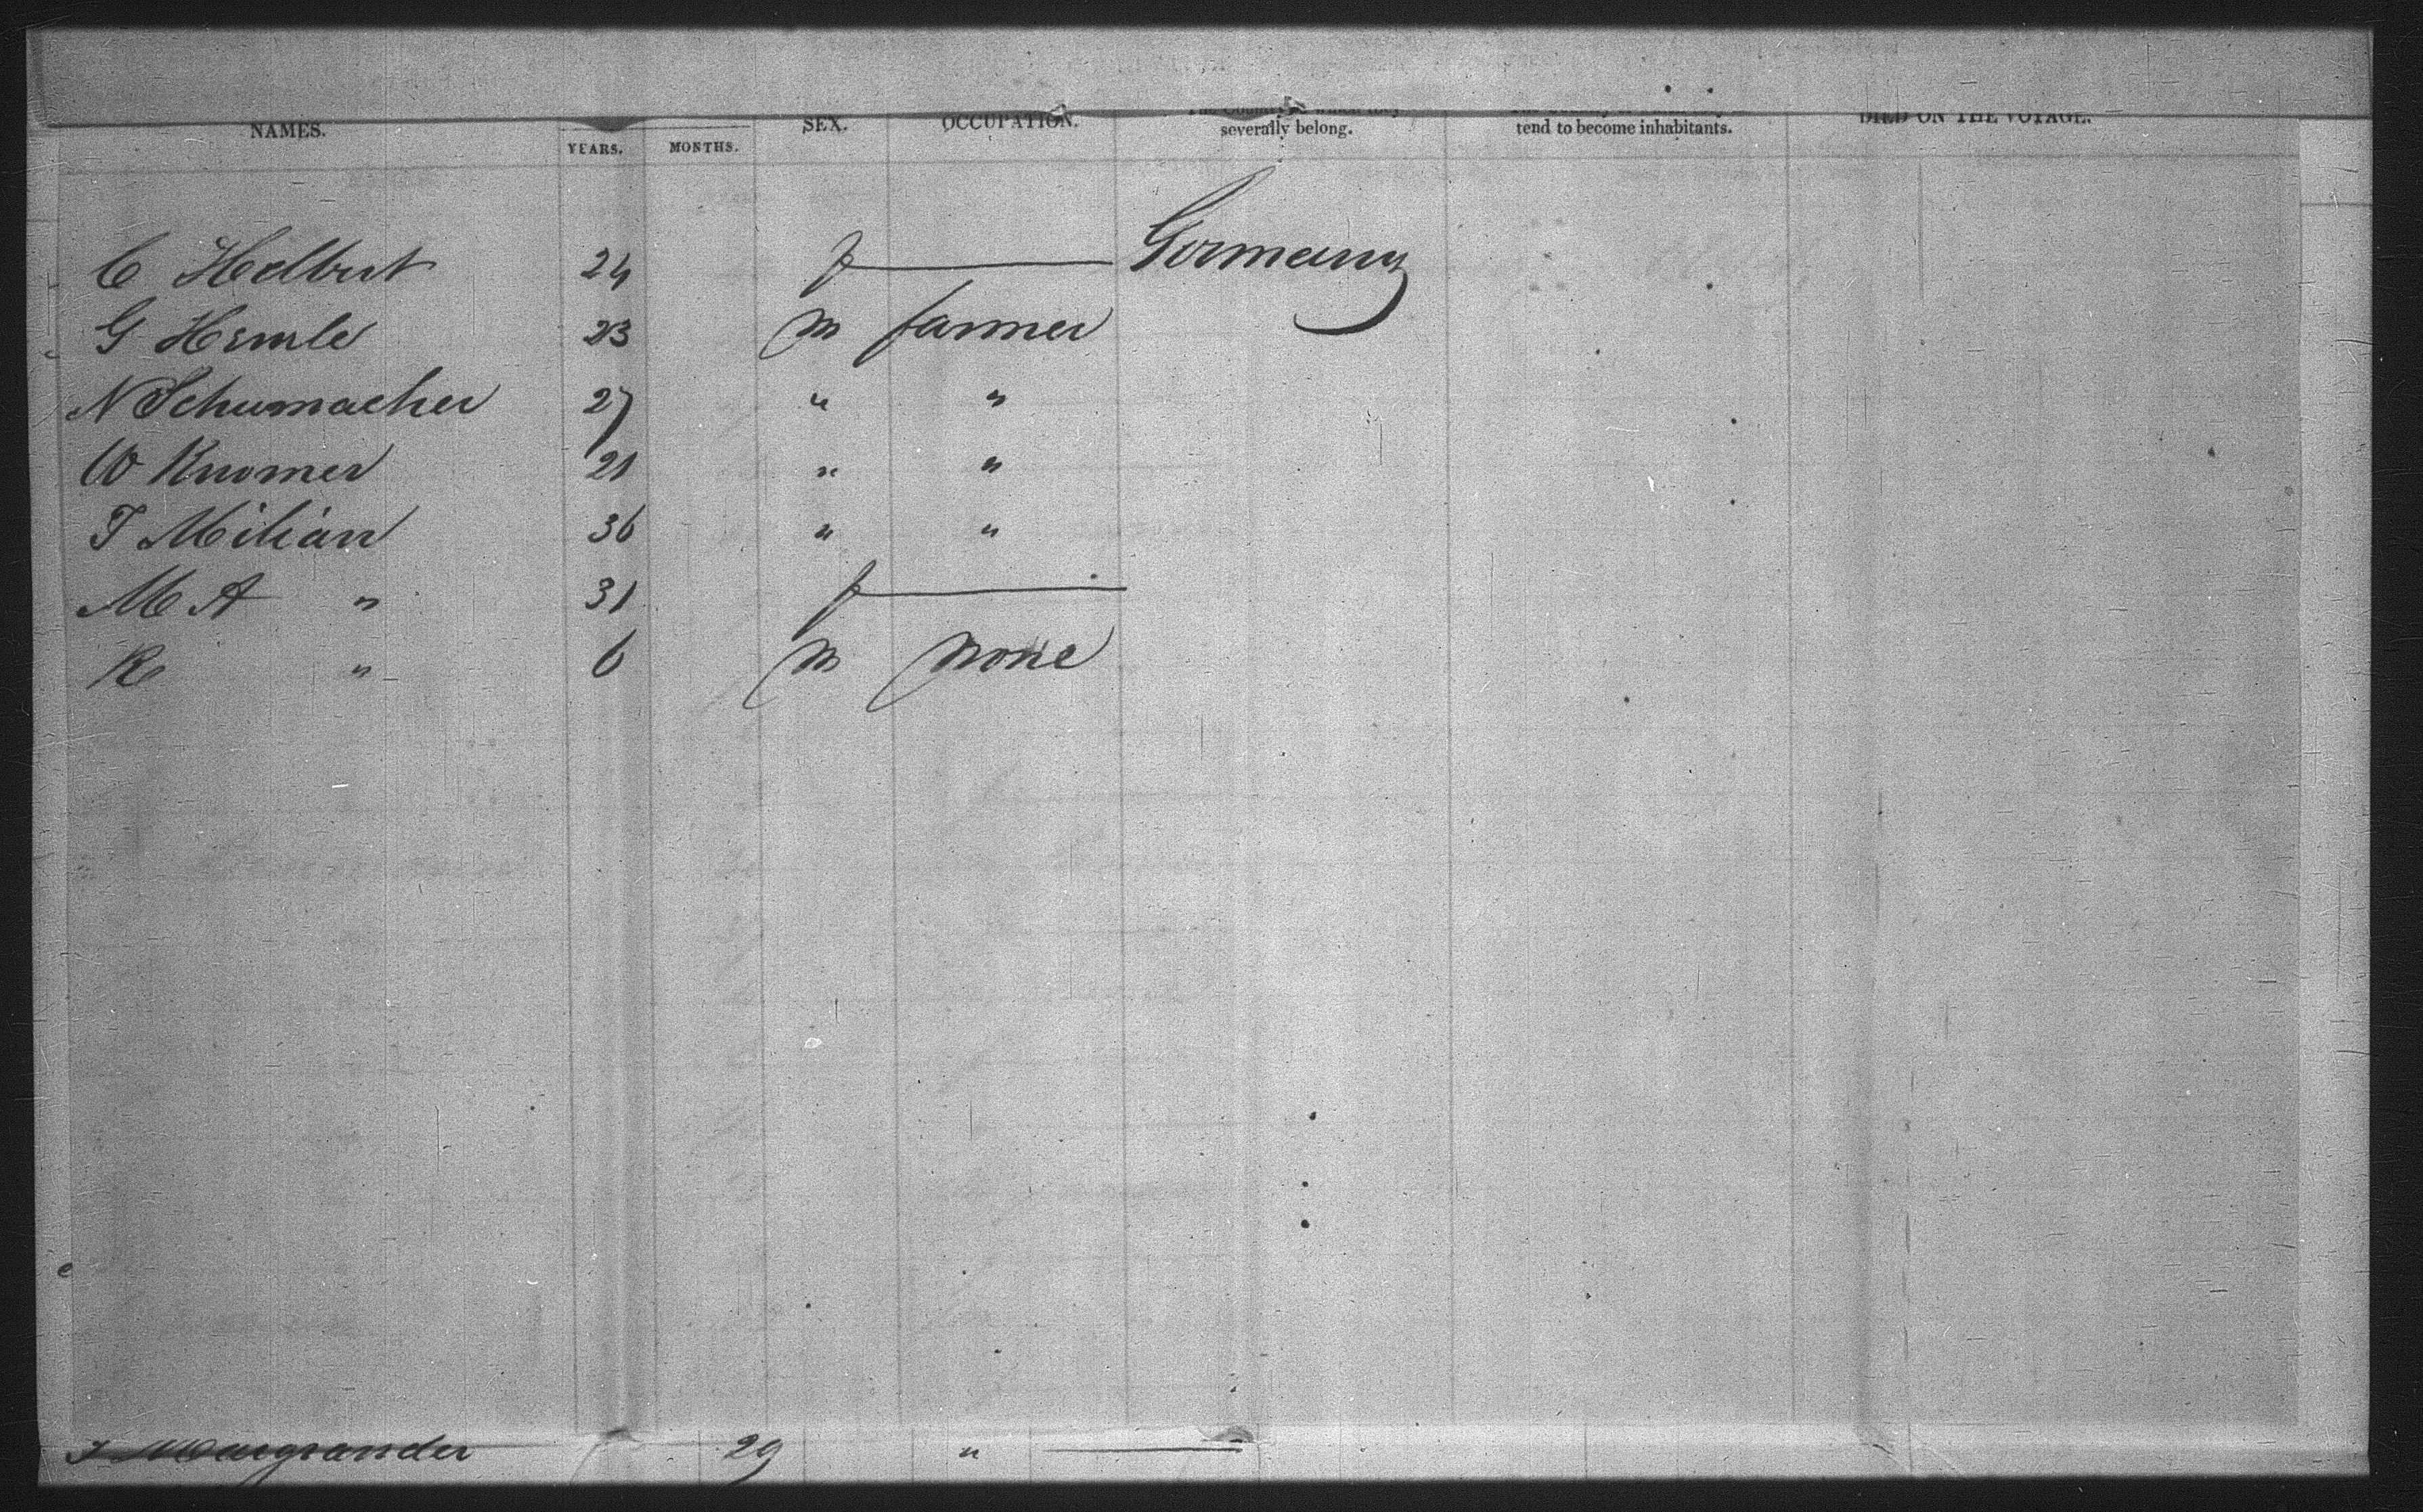 NAMES. YEARS. MONTHS. SEX. OCCUPATION. severally belong. tend to become inhabitants. DIED ON THE VOYAGE.
C Helbert 24 f Germany
G Hemle 23 m farmer
N Schumacher 27 " "
W Kromer 21 " "
T Milian 36 " "
M A " 31 f
R " 6 m none
29 "